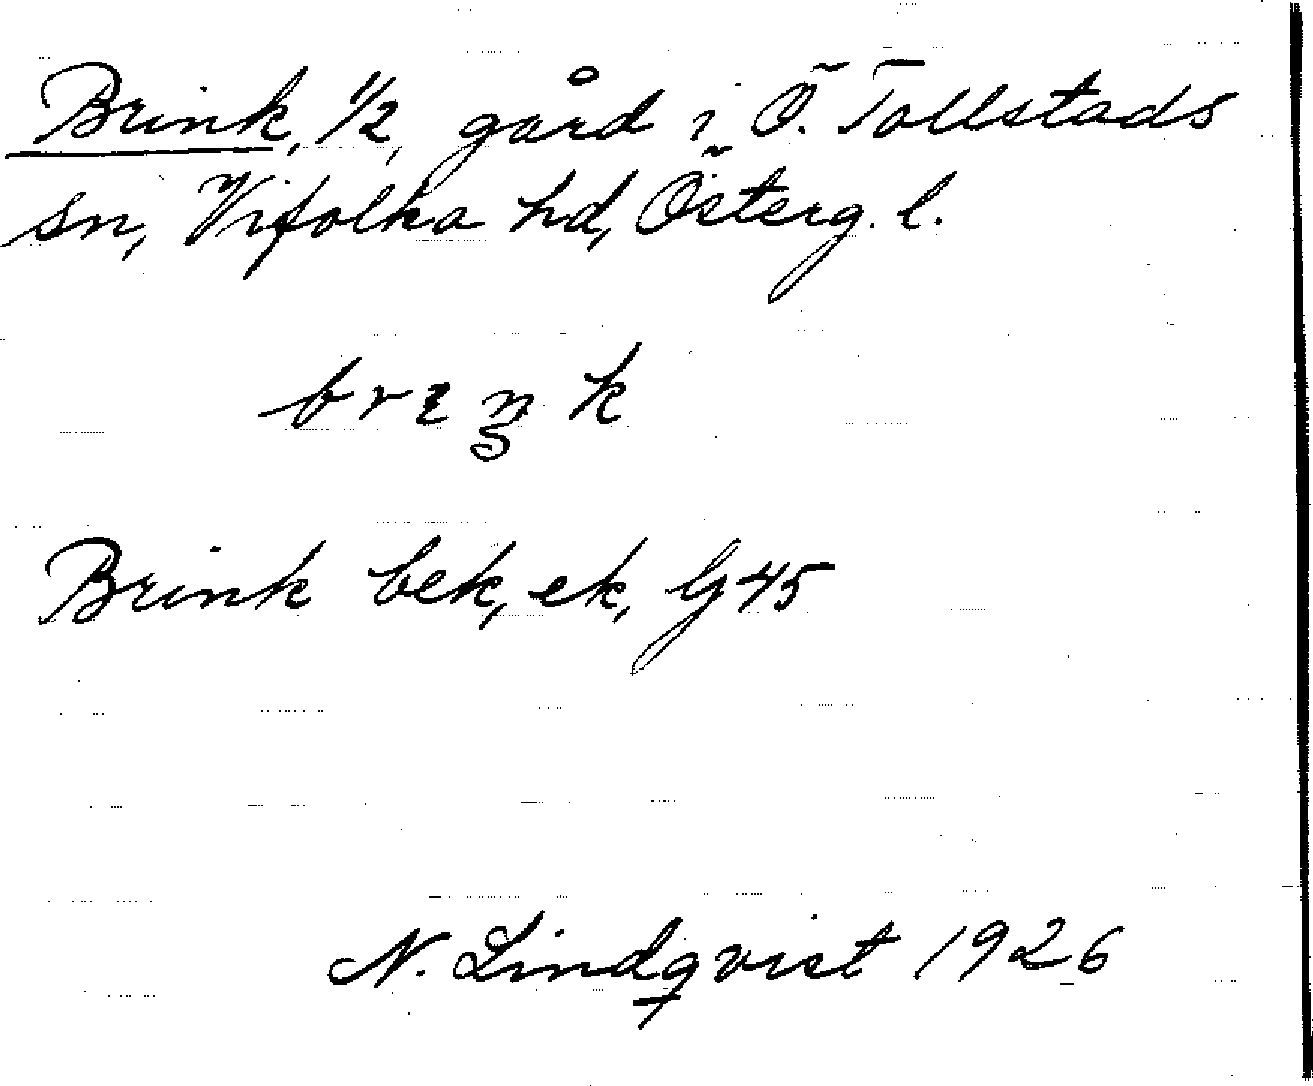 Brink, 1/2, gård i Ö. Tollstads
sn, Vifolka hd, Österg. l.
Brink bek, ek, G 45
N. Lindqvist 1926